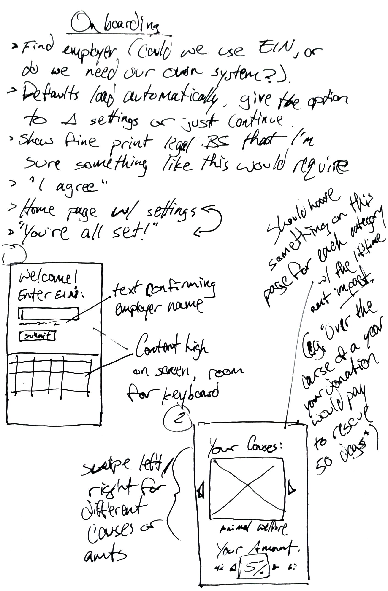 Onboarding
> Find employer (could we use EIN, or
do we need our own system?).
> Defaults load automatically, give the option
to Δ settings or just continue.
> Show fine print legal BS that I'm
sure something like this would require
> "I agree"
> Home page w/ settings
> "You're all set!"
1
Welcome!
Enter EIN:
submit
text confirming
employer name
Content high
on screen, room
for keyboard
should have
something on this
page for each category
w/ the
impact.
(eg "Over the
course of a year
your donation
would pay
to rescue
50 dogs")
2
swipe left/
right for
different
causes or
amts
Your Causes:
animal welfare
Your Amount:
5%